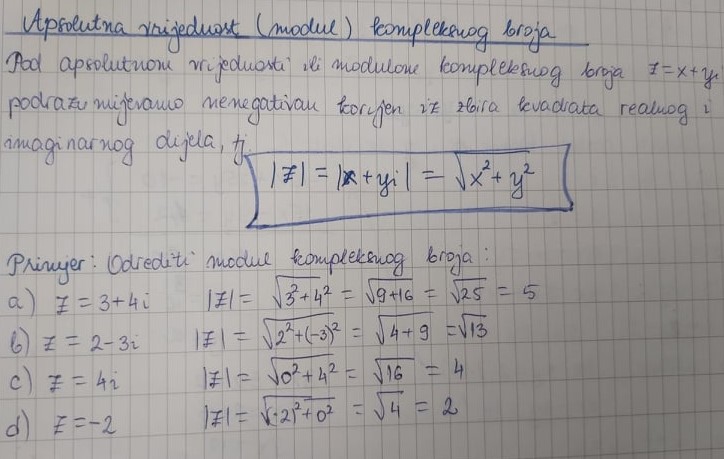 Apsolutna vrijednost (modul) kompleksnog broja
Pod apsolutnom vrijednosti ili modulom kompleksnog broja z=x+yi
podrazumijevamo nenegativan korijen iz zbira kvadrata realnog i
imaginarnog dijela, tj.
|z| = |x+yi| = √x²+y²
Primjer: Odrediti modul kompleksnog broja:
a) z = 3+4i |z| = √3²+4² = √9+16 = √25 = 5
b) z = 2-3i |z| = √2²+(-3)² = √4+9 = √13
c) z = 4i |z| = √0²+4² = √16 = 4
d) z = -2 |z| = √(-2)²+0² = √4 = 2